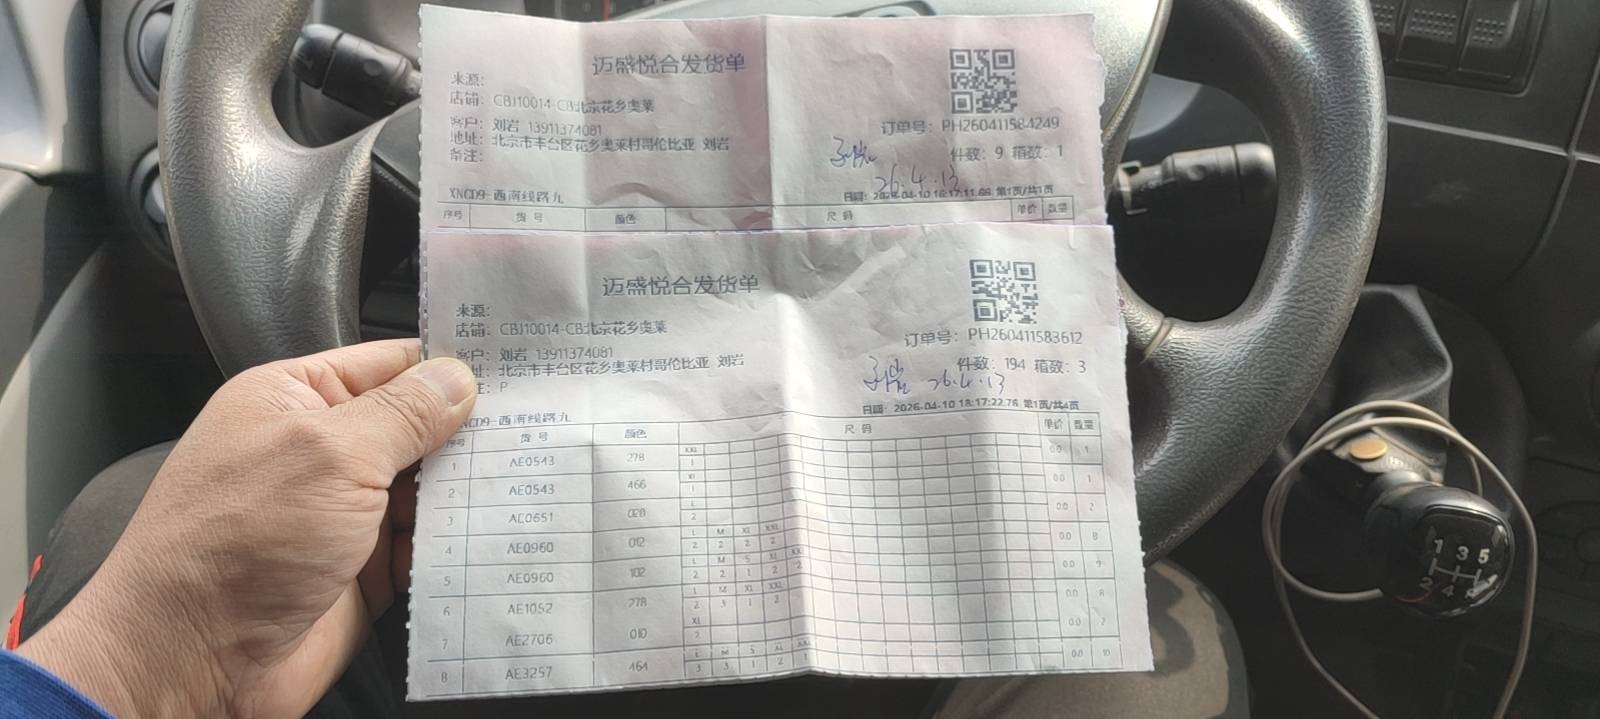 迈盛悦合发货单
来源:
店铺: CBJ10014-CB北京花乡奥莱
订单号: PH260411584249
客户: 刘岩 13911374081
地址: 北京市丰台区花乡奥莱村哥伦比亚 刘岩
件数: 9 箱数: 1
备注:
26.4.13
XNCD9-西南线路九
日期: 2026-04-10 16:17:11.66 第1页/共1页
序号 货号 颜色 尺码 单价 数量
迈盛悦合发货单
来源:
店铺: CBJ10014-CB北京花乡奥莱
订单号: PH260411583612
客户: 刘岩 13911374081
址: 北京市丰台区花乡奥莱村哥伦比亚 刘岩
件数: 194 箱数: 3
注: P
26.4.13
NCD9-西南线路九
日期: 2026-04-10 18:17:22.76 第1页/共4页
序号 货号 颜色 尺码 单价 数量
1 AE0543 278 XXL 1 0.0 1
2 AE0543 466 XL 1 0.0 1
3 AE0651 028 L 2 0.0 2
4 AE0960 012 L M XL XXL 2 2 2 2 0.0 8
5 AE0960 102 L M S XL XXL 2 2 1 2 2 0.0 9
6 AE1052 278 L M XL XXL 2 3 1 2 0.0 8
7 AE2706 010 XL 2 0.0 2
8 AE3257 464 L M S XL 3 3 1 2 0.0 10
1 3 5
2 4